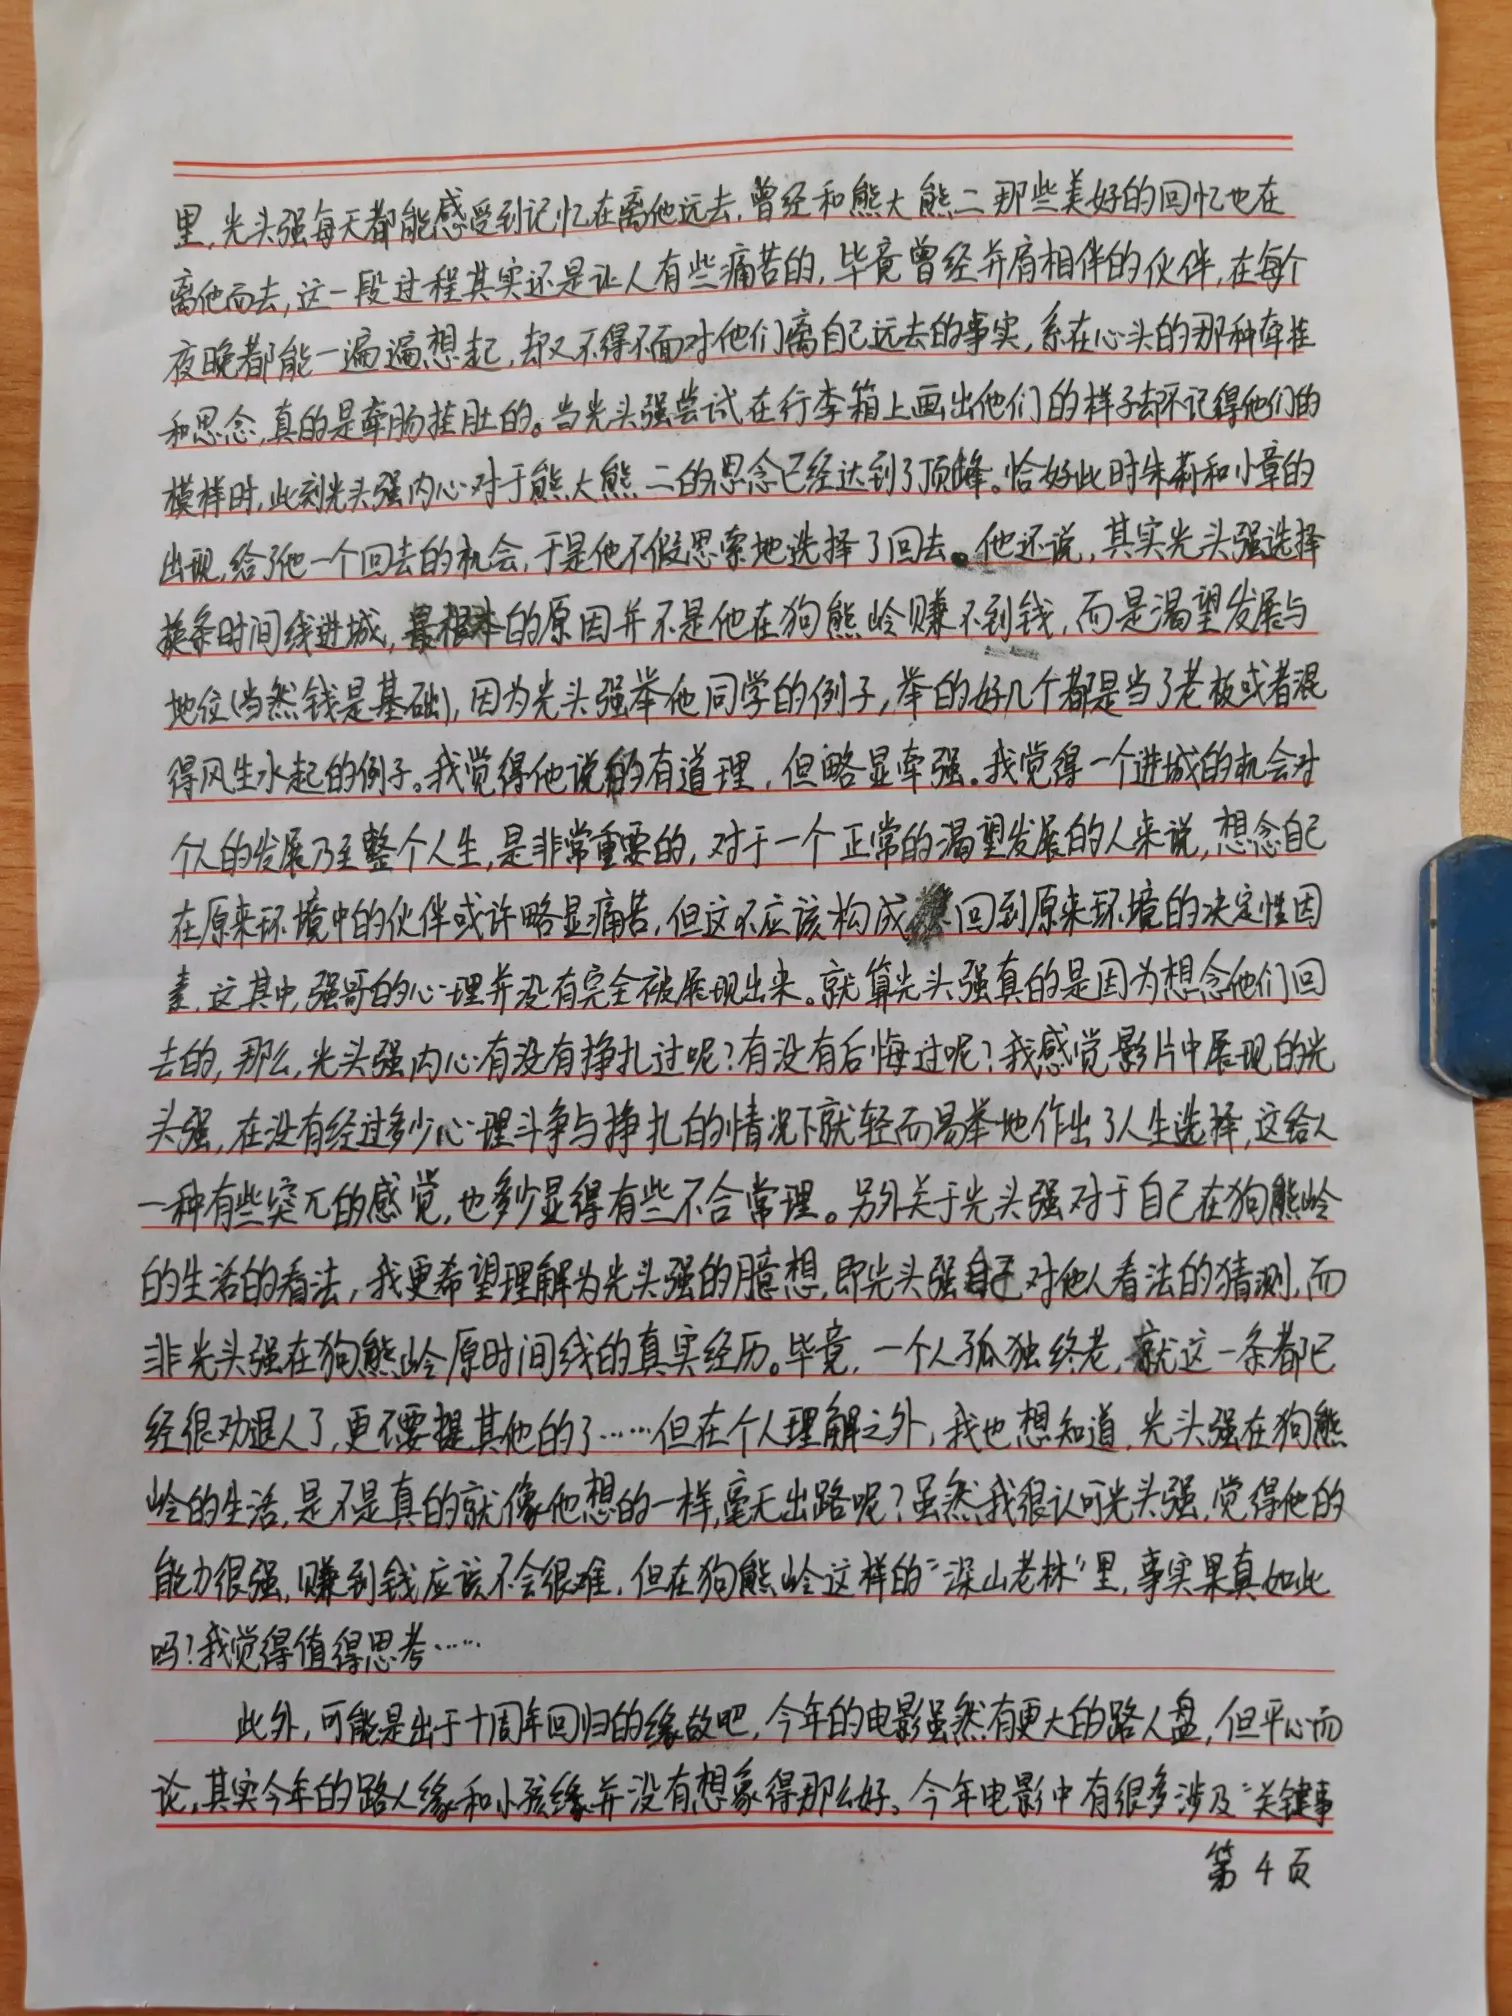 里，光头强每天都能感受到记忆在离他远去，曾经和熊大熊二那些美好的回忆也在
离他而去，这一段过程其实还是让人有些痛苦的，毕竟曾经并肩相伴的伙伴，在每个
夜晚都能一遍遍想起，却又不得不面对他们离自己远去的事实，系在心头的那种牵挂
和思念，真的是牵肠挂肚的。当光头强尝试在行李箱上画出他们的样子却不记得他们的
模样时，此刻光头强内心对于熊大熊二的思念已经达到了顶峰。恰好此时朱莉和小章的
出现，给了他一个回去的机会，于是他不假思索地选择了回去。他还说，其实光头强选择
换条时间线进城，最根本的原因并不是他在狗熊岭赚不到钱，而是渴望发展与
地位（当然钱是基础），因为光头强举他同学的例子，举的好几个都是当了老板或者混
得风生水起的例子。我觉得他说的有道理，但略显牵强。我觉得一个进城的机会对
个人的发展乃至整个人生，是非常重要的，对于一个正常的渴望发展的人来说，想念自己
在原来环境中的伙伴或许略显痛苦，但这不应该构成回到原来环境的决定性因
素，这其中，强哥的心理并没有完全被展现出来。就算光头强真的是因为想念他们回
去的，那么，光头强内心有没有挣扎过呢？有没有后悔过呢？我感觉影片中展现的光
头强，在没有经过多少心理斗争与挣扎的情况下就轻而易举地作出了人生选择，这给人
一种有些突兀的感觉，也多少显得有些不合常理。另外关于光头强对于自己在狗熊岭
的生活的看法，我更希望理解为光头强的臆想，即光头强自己对他人看法的猜测，而
非光头强在狗熊岭原时间线的真实经历。毕竟，一个人孤独终老，就这一条都已
经很劝退人了，更不要提其他的了……但在个人理解之外，我也想知道，光头强在狗熊
岭的生活，是不是真的就像他想的一样，毫无出路呢？虽然我很认可光头强，觉得他的
能力很强，赚到钱应该不会很难，但在狗熊岭这样的“深山老林”里，事实果真如此
吗？我觉得值得思考……
此外，可能是出于十周年回归的缘故吧，今年的电影虽然有更大的路人盘，但平心而
论，其实今年的路人缘和小孩缘并没有想象得那么好。今年电影中有很多涉及“关键事
第4页